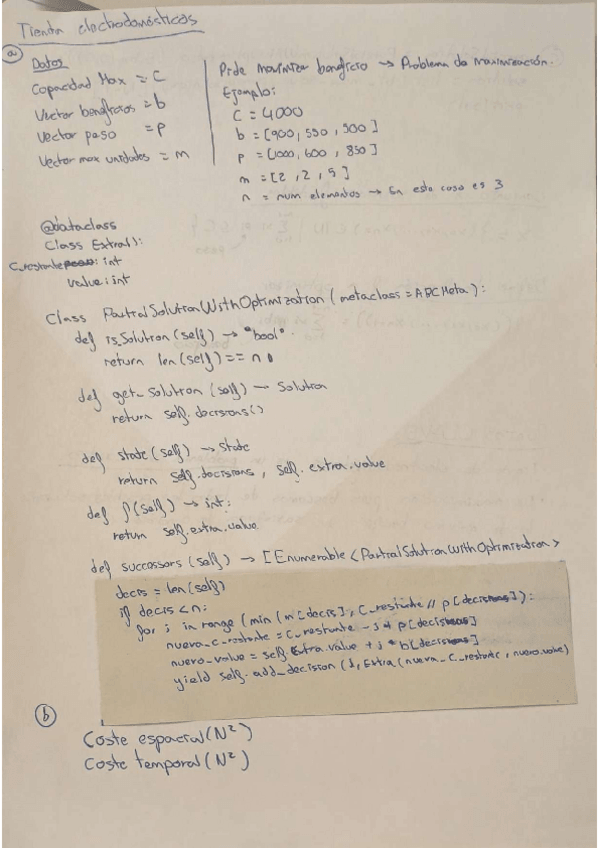 Tienda electrodomésticos
a
Datos
Capacidad Max = C
Vector beneficios = b
Vector peso = p
Vector max unidades = m
Pide maximizar beneficio → Problema de maximización.
Ejemplo:
C = 4000
b = [900, 550, 500]
p = [1000, 600, 850]
m = [2, 2, 5]
n = num elementos → En este caso es 3
@dataclass
Class Extra():
C_restante: int
value: int
Class PartialSolutionWithOptimization (metaclass = ABCMeta):
def is_Solution (self) → "bool":
return len(self) == n
def get_Solution (self) → Solution
return self.decisions()
def state (self) → State
return self.decisions, self.extra.value
def f(self) → int:
return self.extra.value
def successors (self) → [Enumerable <PartialSolutionWithOptimization>
decis = len(self)
if decis < n:
for j in range (min (m[decis], C_restante // p[decis]):
nueva_c_restante = C_restante - j * p[decis]
nuevo_value = self.Extra.value + j * b[decis]
yield self.add_decision (j, Extra (nueva_C_restante, nuevo.value)
b
Coste espacial (N²)
Coste temporal (N²)